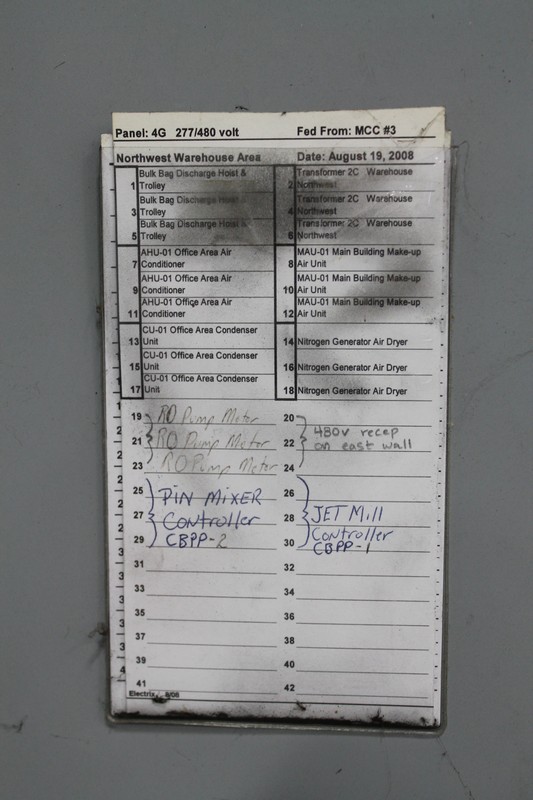 Panel: 4G 277/480 volt Fed From: MCC #3
Northwest Warehouse Area Date: August 19, 2008
1 Bulk Bag Discharge Hoist & Trolley
2 Transformer 2C Warehouse Northwest
3 Bulk Bag Discharge Hoist & Trolley
4 Transformer 2C Warehouse Northwest
5 Bulk Bag Discharge Hoist & Trolley
6 Transformer 2C Warehouse Northwest
7 AHU-01 Office Area Air Conditioner
8 MAU-01 Main Building Make-up Air Unit
9 AHU-01 Office Area Air Conditioner
10 MAU-01 Main Building Make-up Air Unit
11 AHU-01 Office Area Air Conditioner
12 MAU-01 Main Building Make-up Air Unit
13 CU-01 Office Area Condenser Unit
14 Nitrogen Generator Air Dryer
15 CU-01 Office Area Condenser Unit
16 Nitrogen Generator Air Dryer
17 CU-01 Office Area Condenser Unit
18 Nitrogen Generator Air Dryer
19 RO Pump Motor
20
21 RO Pump Motor
22 480V recep on east wall
23 RO Pump Motor
24
25 PIN MIXER
26
27 Controller
28 JET Mill
29 CBPP-2
30 Controller CBPP-1
31
32
33
34
35
36
37
38
39
40
41
42
Electrix 8/08